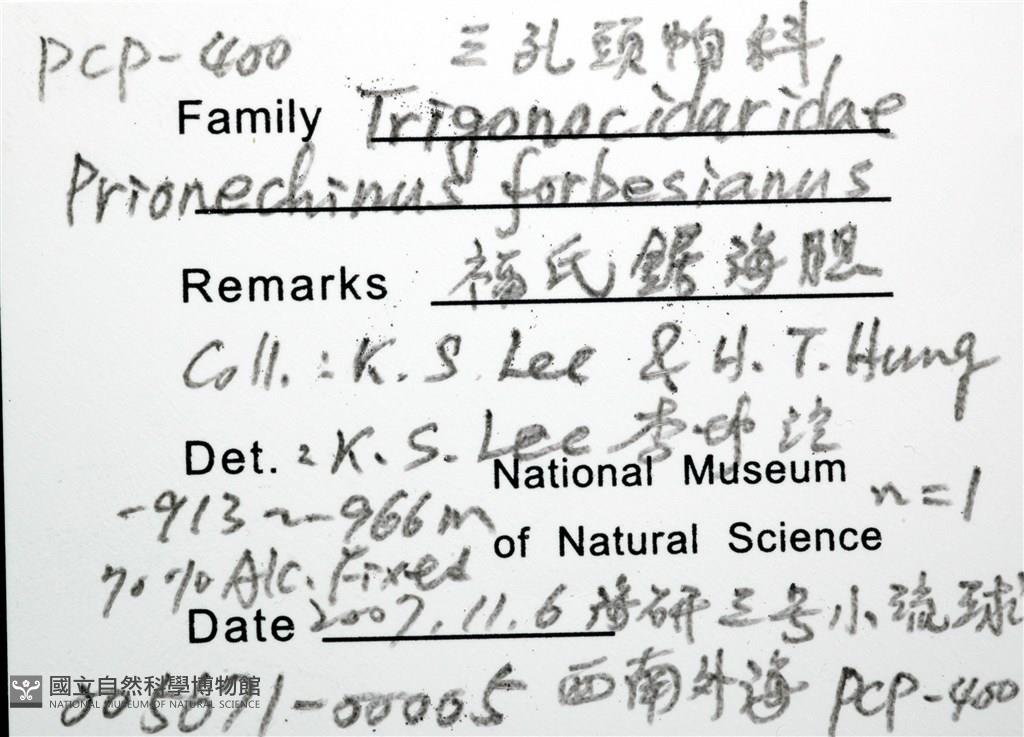 PCP-400 三孔頭帕科
Family Trigonocidaridae
Prionechinus forbesianus
Remarks 福氏鋸海胆
Coll. : K. S. Lee & H. T. Hung
Det. : K. S. Lee 李坤瑄
National Museum
-913～-966m n=1
of Natural Science
70% Alc. Fixed
Date 2007.11.6 海研三号小琉球
西南外海 PCP-400
005071-00005
國立自然科學博物館
NATIONAL MUSEUM OF NATURAL SCIENCE